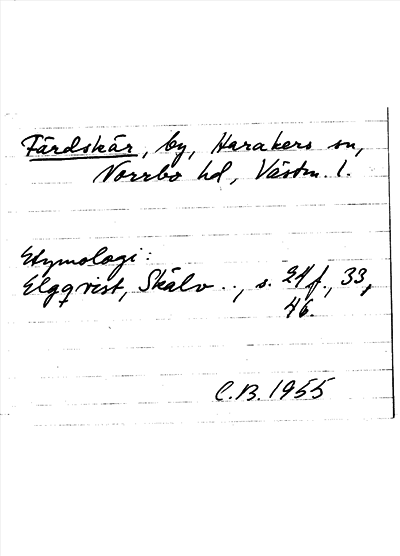 Färdskär, by, Harakers sn,
Norrbo hd, Västm. l.
Etymologi:
Elgqvist, Skälv .., s. 24 f., 33,
46.
C.B. 1955